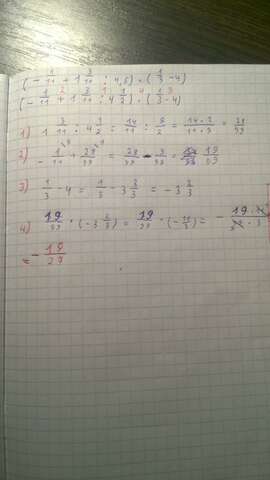 (- 1/11 + 1 3/11 : 4,5) · (1/3 - 4)
(- 1/11 + 1 3/11 : 4 1/2) · (1/3 - 4)
1) 1 3/11 : 4 1/2 = 14/11 : 9/2 = 14·2/11·9 = 28/99
2) - 1/11 + 28/99 = 28/99 - 9/99 = 19/99
3) 1/3 - 4 = 1/3 - 3 3/3 = -3 2/3
4) 19/99 · (-3 2/3) = 19/99 · (- 11/3) = - 19·11/99·3
= - 19/27